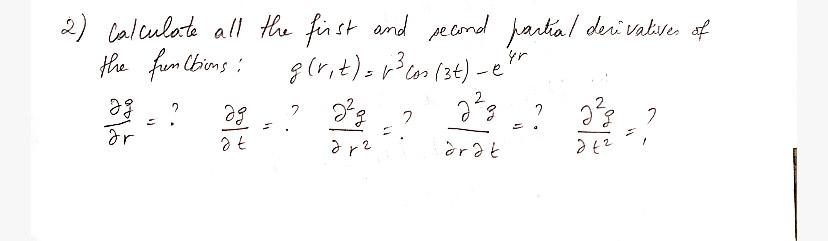 2) Calculate all the first and second partial derivatives of
the functions: g(r,t) = r³ cos(3t) - e⁴ʳ
∂g/∂r = ? ∂g/∂t = ? ∂²g/∂r² = ? ∂²g/∂r∂t = ? ∂²g/∂t² = ?